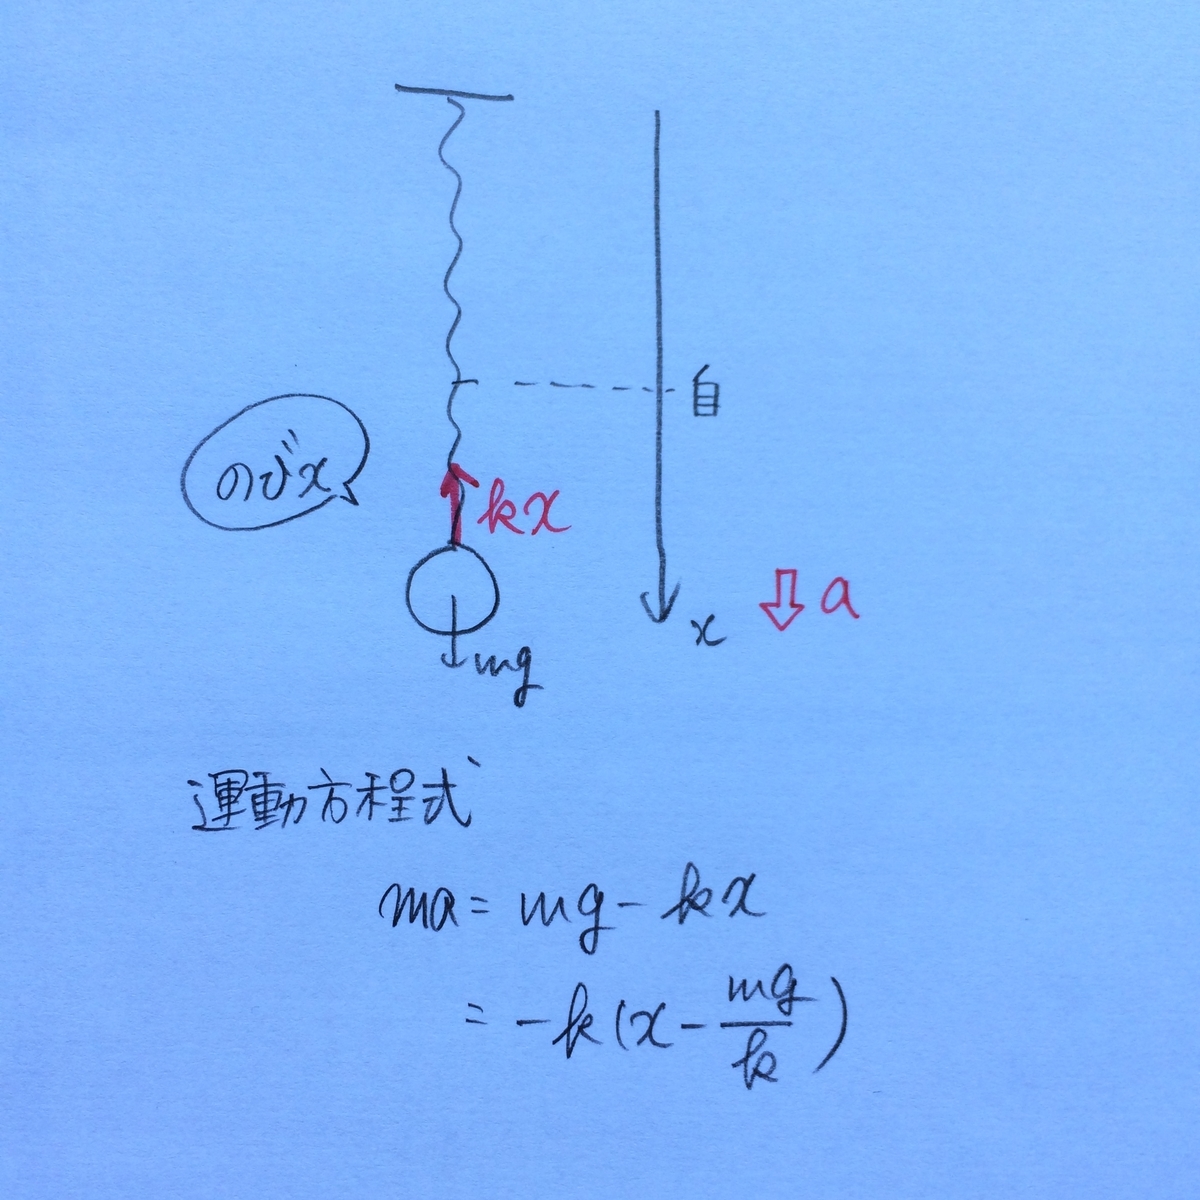 自
のびx
kx
a
x
mg
運動方程式
ma = mg - kx
= -k(x - mg/k)